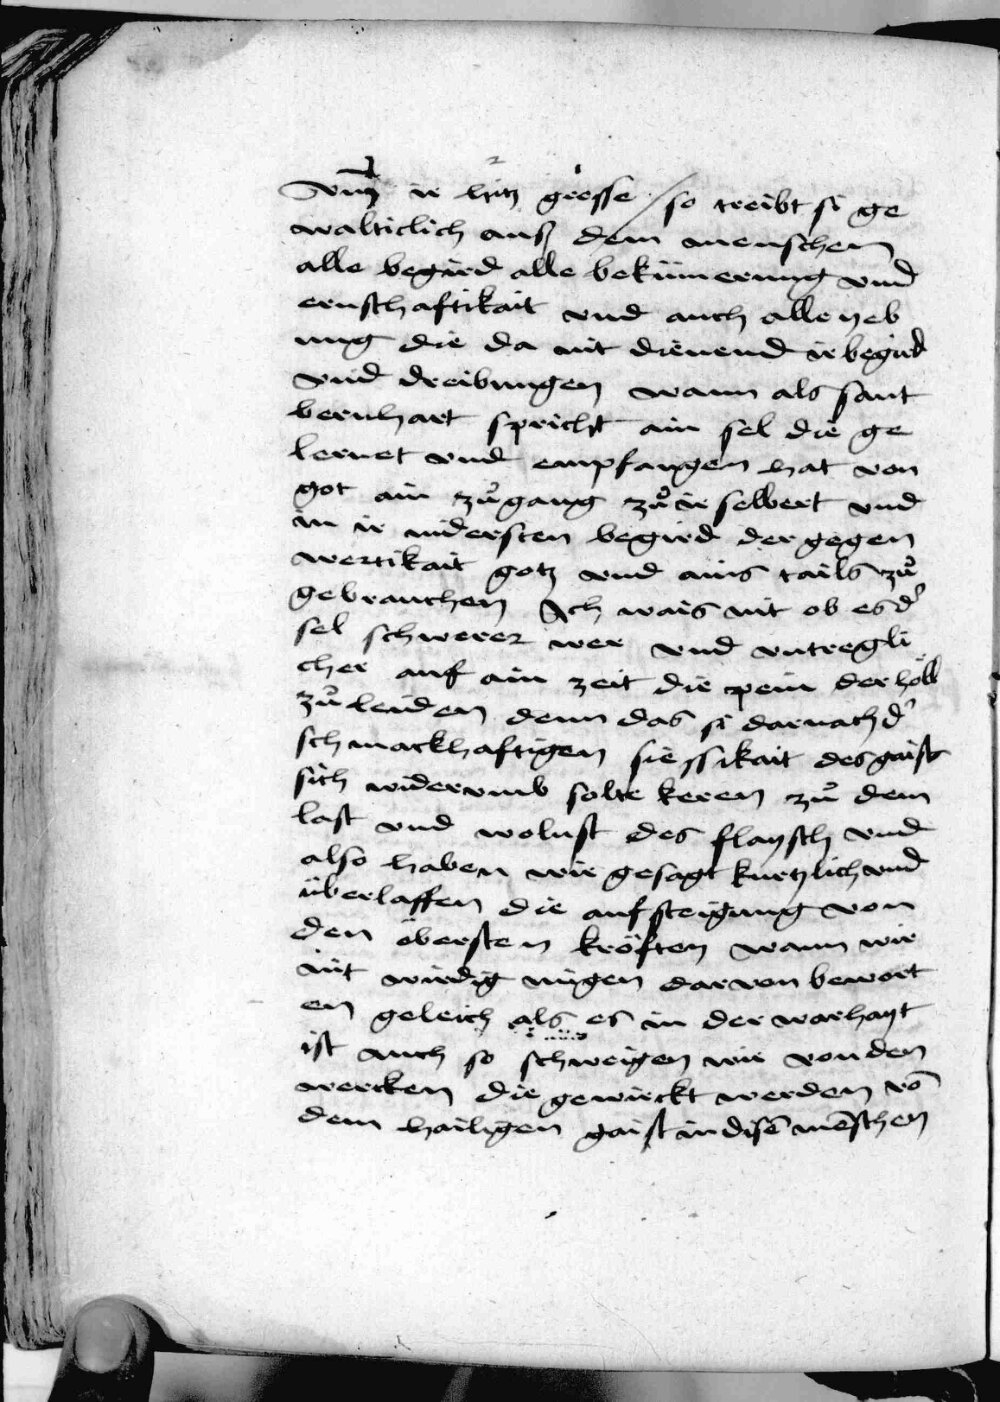 vmb ir hitz grosse / so treibt si ge
walticlich auß dem menschen
alle begird alle bekümerung vnd
ernschaftikait vnd auch alle yeb
ung die da nit dienend ir begird
vnd dreibungen wann als sant
bernhart spricht ain sel die ge
lernet vnd empfangen hat von
got ain zůgang zů ir selbert vnd
in ir indersten begird der gegen
wertikait gotz vnd ains tails zů
gebrauchen Ich wais nit ob es d'
sel schwerer wer vnd vntregli
cher auf ain zeit die pein der höll
zů leiden denn das si darnach d'
schmackhaftigen siessikait des gaist
sich widervmb solte keren zů dem
last vnd wolust des flaysch vnd
also haben wir gesagt kurtzlich vnd
überlassen die aufsteigung von
den öbersten kröften wann wir
nit wirdig mügen darvon bewort
en geleich als es in der warhayt
ist auch so schweigen wir von den
wercken die gewirckt werden vō
dem hailigen gaist in disē mēschen